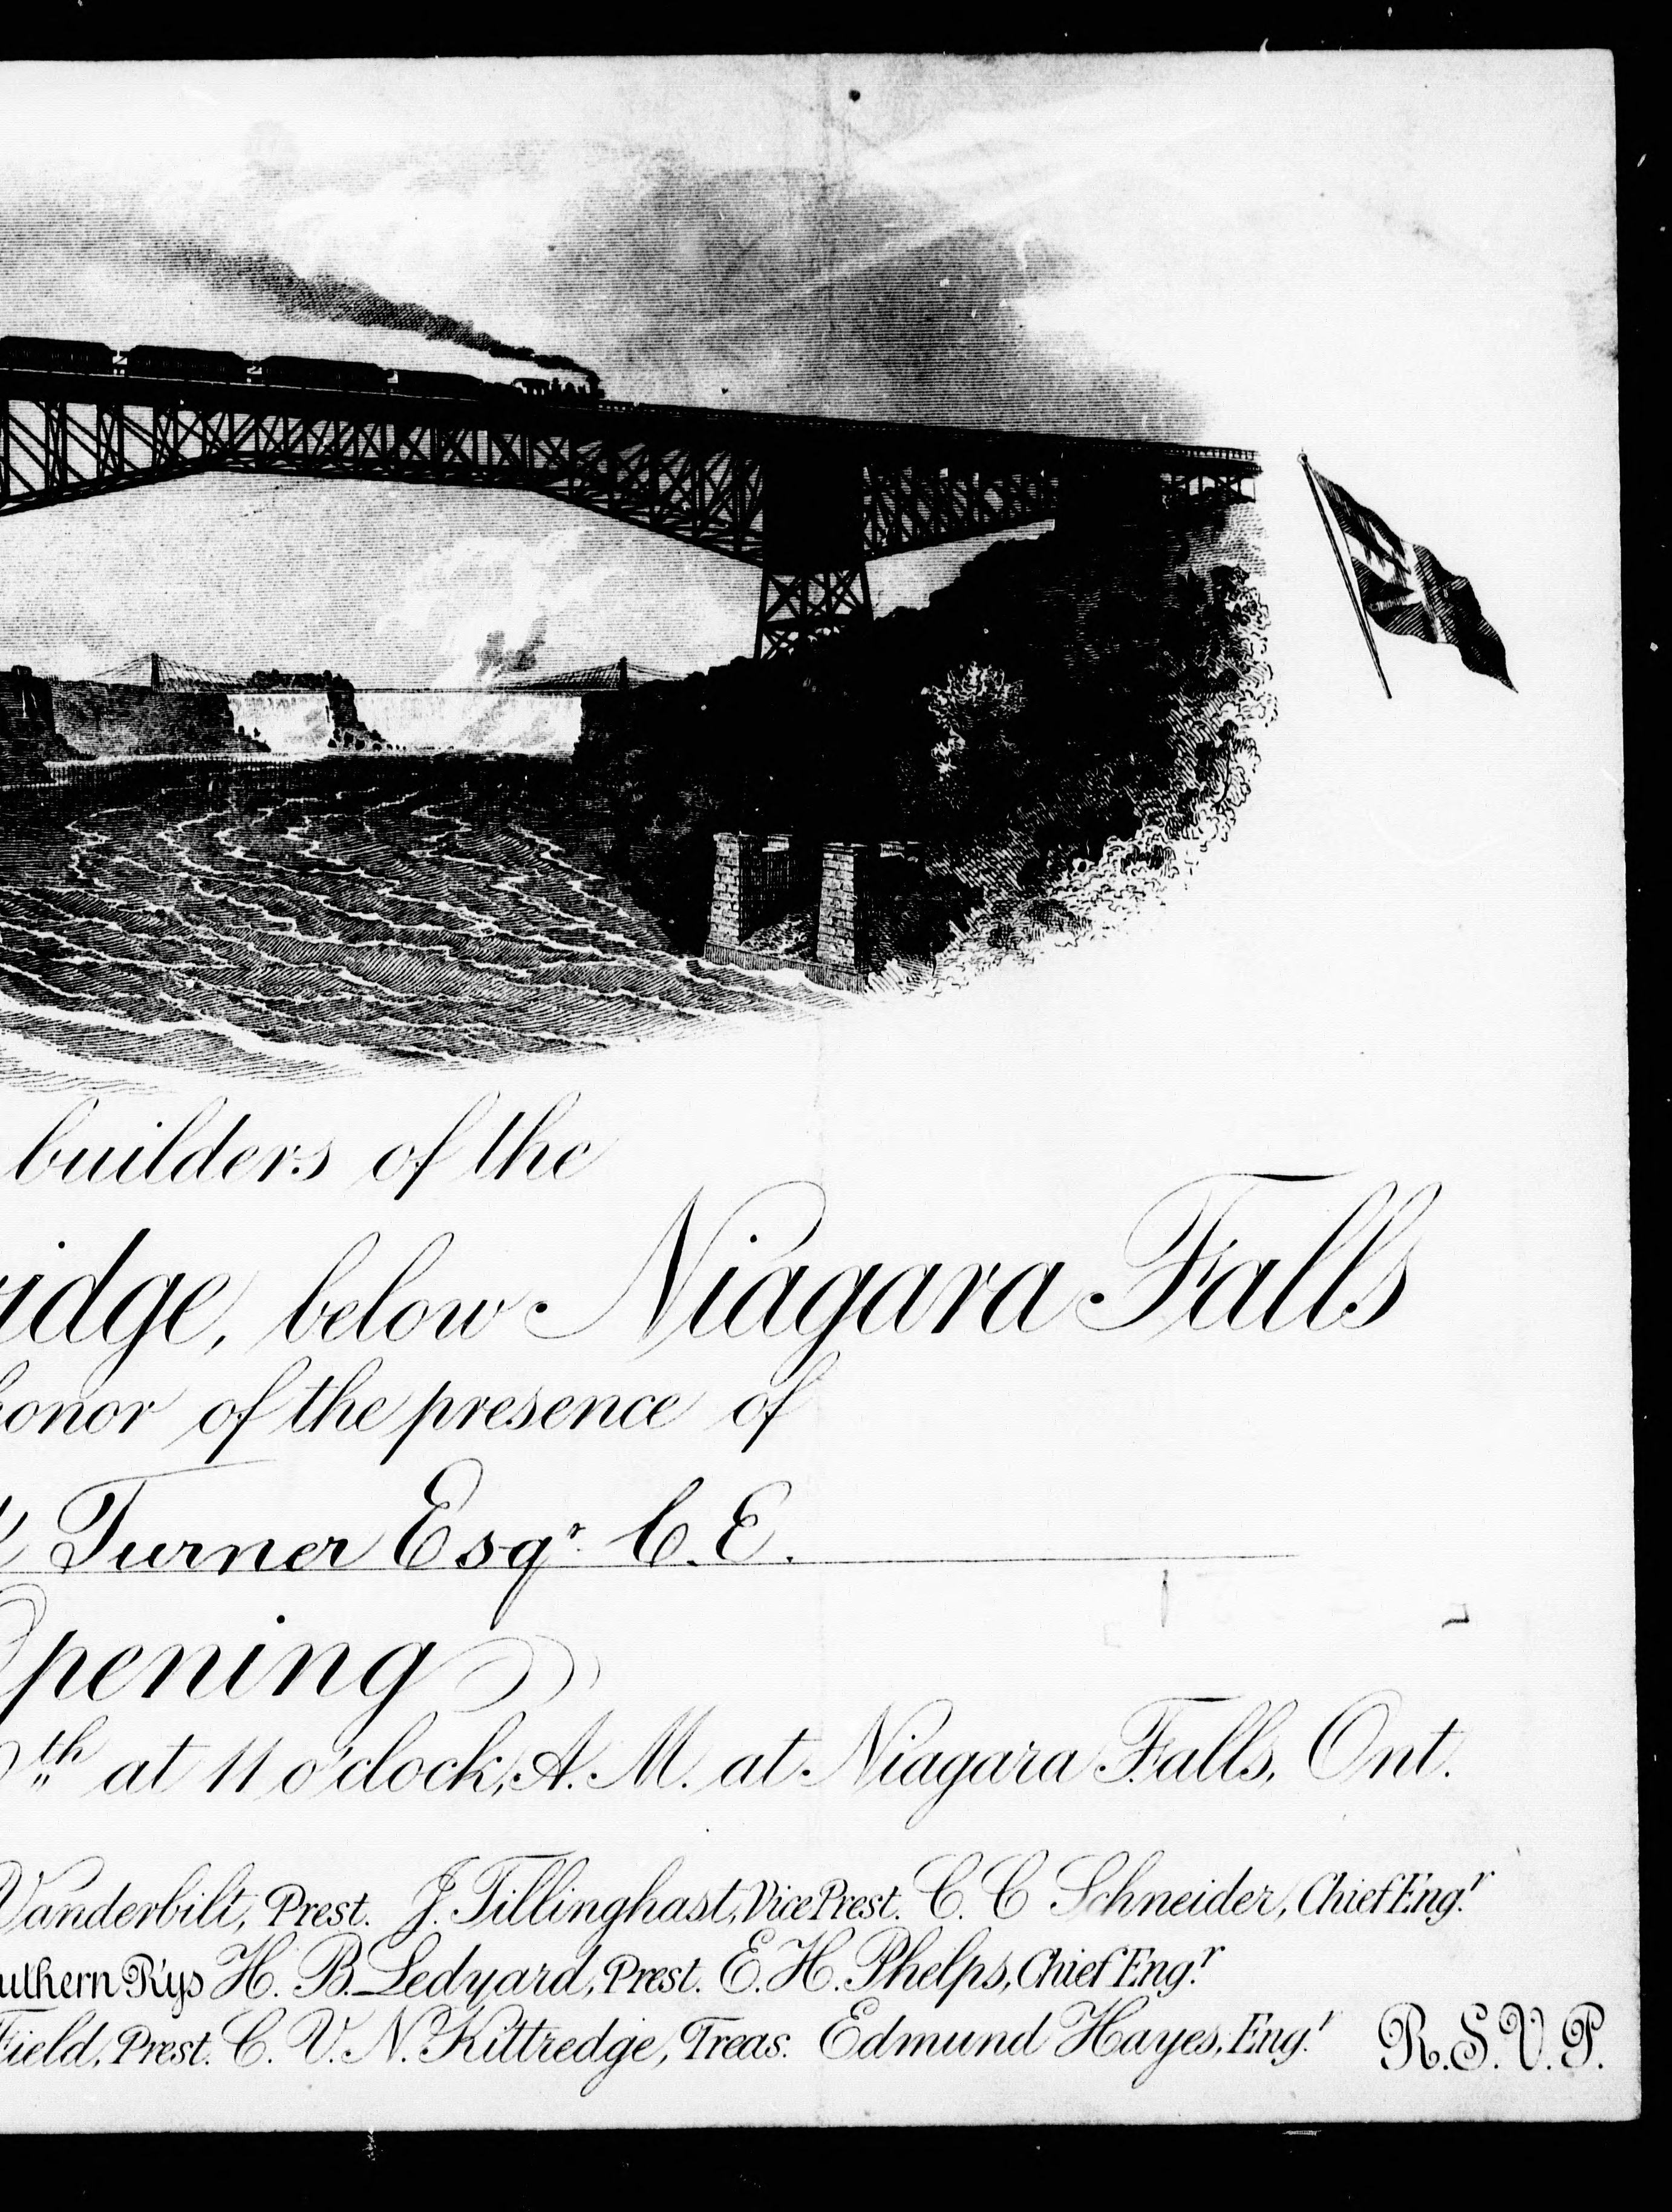 builders of the
idge, below Niagara Falls
onor of the presence of
Turner Esqr. C.E.
pening
th at 11 o'clock, A.M. at Niagara Falls, Ont.
Vanderbilt, Prest. J. Tillinghast, Vice Prest. C. C Schneider, Chief Engr.
uthern R'ys H. B. Ledyard, Prest. E. H. Phelps, Chief Engr.
Field, Prest. C. V. N. Kittredge, Treas. Edmund Hayes, Engr. R.S.V.P.